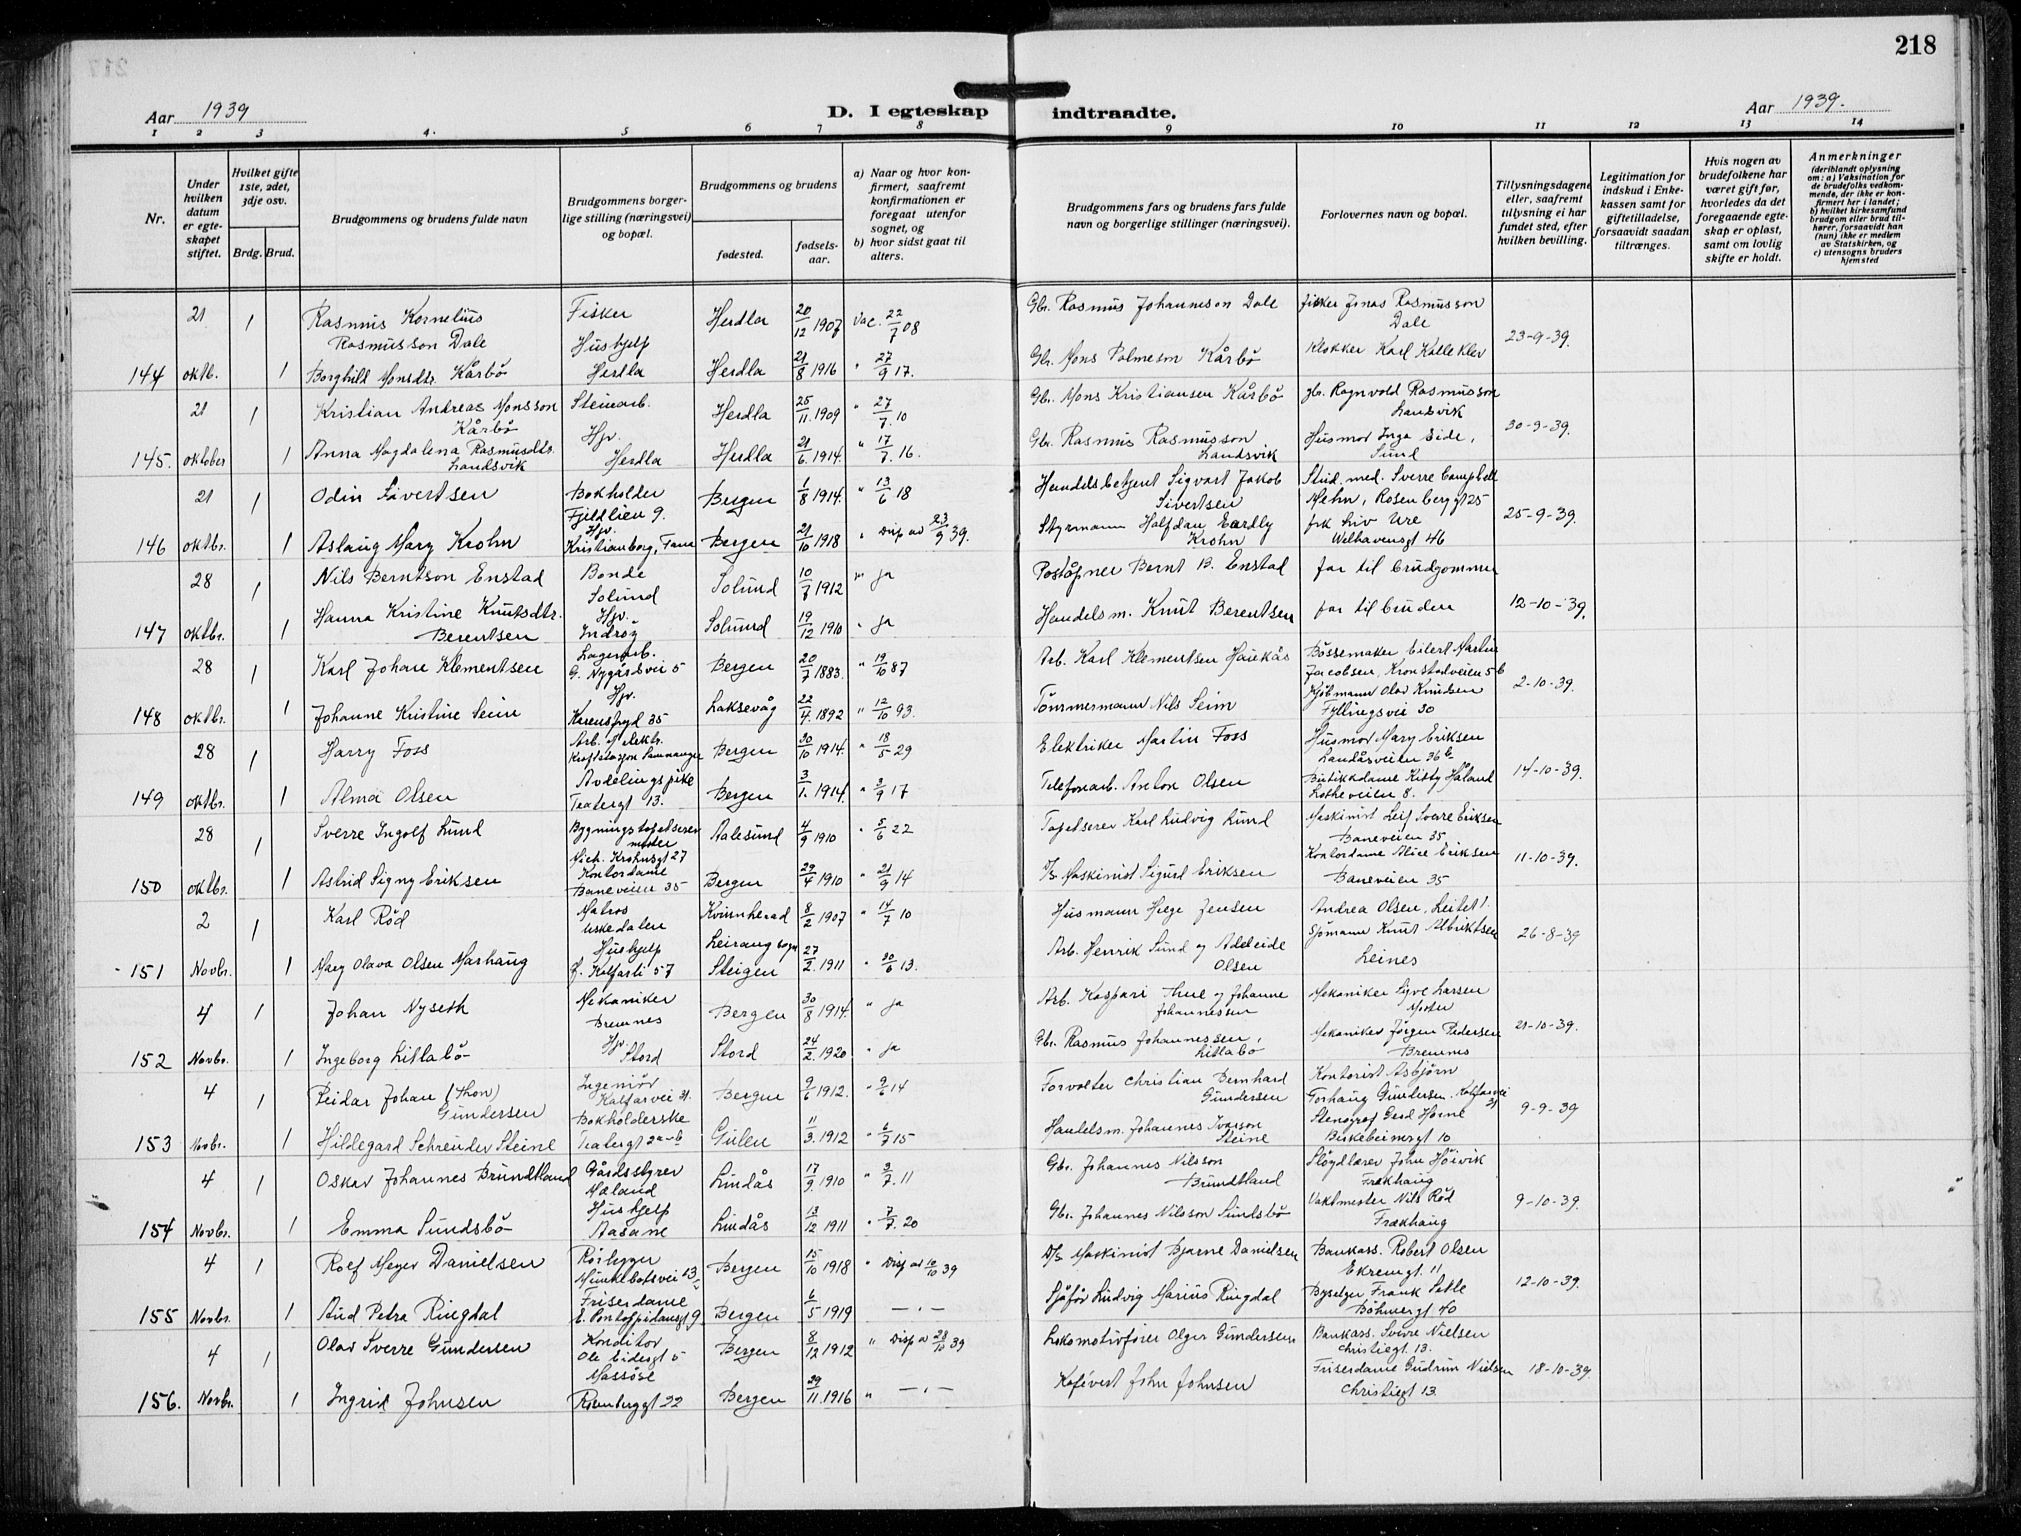 218
Aar 1939
D. I egteskap indtraadte.
Aar 1939.
1 2 3 4. 5 6 7 8 9 10 11 12 13 14
Nr.
Under hvilken datum er egteskapet stiftet.
Hvilket gifte 1ste, 2det, 3dje osv.
Brdg. Brud.
Brudgommens og brudens fulde navn
Brudgommens borgerlige stilling (næringsvei) og bopæl.
Brudgommens og brudens
fødested.
fødselsaar.
a) Naar og hvor konfirmert, saafremt konfirmationen er foregaat utenfor sognet, og
b) hvor sidst gaat til alters.
Brudgommens fars og brudens fars fulde navn og borgerlige stillinger (næringsvei).
Forlovernes navn og bopæl.
Tillysningsdagene eller, saafremt tillysning ei har fundet sted, efter hvilken bevilling.
Legitimation for indskud i Enkekassen samt for giftetilladelse, forsaavidt saadan tiltrænges.
Hvis nogen av brudefolkene har været gift før, hvorledes da det foregaaende egteskap er opløst, samt om lovlig skifte er holdt.
Anmerkninger (deriblandt oplysning om: a) Vaksination for de brudefolks vedkommende, der ikke er konfirmert her i landet; b) hvilket kirkesamfund brudgom eller brud tilhører, forsaavidt han (hun) ikke er medlem av Statskirken, og c) utensogns bruders hjemsted
21 1 Rasmus Kornelius Rasmusson Dale Fisker Herdla 20/12 1907 Vac. 22/7 08 Gbr. Rasmus Johanneson Dale fisker Jonas Rasmusson Dale 23-9-39.
144 oktb. 1 Borghild Monsdtr. Kårbø Hushjelp Herdla Herdla 21/8 1916 " 27/9 17. Gbr. Mons Palmeson Kårbø Klokker Karl Kalleklev
21 1 Kristian Andreas Monsson Kårbø Steinarb. Herdla 25/11 1909 " 27/7 10 Gbr. Mons Kristiansen Kårbø gb. Ragnvald Rasmusson Landsvik 30-9-39.
145. oktober 1 Anna Magdalena Rasmusdtr. Landsvik Hjv. Herdla Herdla 21/6 1914. " 17/7 16. Gbr. Rasmus Rasmusson Landsvik Husmor Inga Eide, Sund
21 1 Odin Sivertsen Bokholder Fjeldlien 9. Bergen 1/8 1914. " 13/6 18 Handelsbetjent Sigvart Jakob Sivertsen Stud. med. Sverre Campbell Mehn, Rosenberggt 25 25-9-39.
146 oktbr. 1 Aslaug Mary Krohn Hjv. Kristianborg, Fana Bergen 21/10 1918 " Disp av 23/9 39. Styrmann Halfdan Eardly Krohn frk Liv Ure Welhavensgt 46
28 1 Nils Berntson Enstad Bonde Solund Solund 10/7 1912 " ja Poståpner Bernt B. Enstad far til brudgommen 12-10-39.
147 oktbr. 1 Hanna Kristine Knutsdtr. Berentsen Hjv. Indrøy Solund 19/12 1910 " ja Handelsm. Knut Berentsen far til bruden
28 1 Karl Johan Klementsen Lagerarb. G. Nygårdsvei 5 Bergen 20/7 1883. " 19/10 87 Arb. Karl Klementsen Haukås Bøssemaker Eilert Martin Jacobsen, Kronstadveien 56 2-10-39.
148 oktbr. 1 Johanne Kristine Seim Hjv. Kurensfryd 35 Laksevåg 22/4. 1892 " 12/10 93. Tømmermann Nils Seim Kjøbmann Olav Knudsen Fyllingsvei 30
28 1 Harry Foss Arb. v/ elektr. Kraftstasjon Samnanger Bergen 30/10 1914. " 18/5 29 Elektriker Martin Foss Husmor Mary Eriksen Landåsveien 36b 14-10-39.
149 oktbr. 1 Alma Olsen Avdelingspike Teatergt 13. Bergen 3/1. 1914. " 3/9 17 Telefonarb. Anton Olsen Butikkdame Kitty Håland Lotheveien 8.
28 1 Sverre Ingolf Lund Bygningstapetserermester Mich. Krohnsgt 27 Aalesund 4/9 1910 " 5/6 22 Tapetserer Karl Ludvig Lund Maskinist Leif Sverre Eriksen Baneveien 35 11-10-39.
150 oktbr. 1 Astrid Signy Eriksen Kontordame Baneveien 35 Bergen 29/4 1910 " 21/9 14 Maskinist Sigurd Eriksen Kontordame Alice Eriksen Baneveien 35
2 1 Karl Rød Matros Uskedalen Kvinnherad 8/2 1907 " 14/7 10 Husmann Hege Jensen Andrea Olsen, Leitet 1. 26-8-39
151 Novbr. 1 Mary Olava Olsen Marhaug Hushjelp Kalfarli 57 Leirang sogn Steigen 27/2. 1911 " 30/6 13. Arb. Henrik Sund og Adeleide Olsen Sjømann Knut Albriktsen Leines
4 1 Johan Nyseth Mekaniker Bremnes Bergen 30/8 1914. " ja Arb. Kaspari Aue og Johanne Johannessen Mekaniker Syve Larsen Moster 21-10-39.
152 Novbr. 1 Ingeborg Litlabø Hjv. Stord Stord 24/2. 1920 " ja Gbr. Rasmus Johannessen, Litlabø Mekaniker Jørgen Pedersen Bremnes
4 1 Reidar Johan (Thon) Gundersen Ingeniør Kalfarvei 31. Bergen 9/6 1912. " 9/6 14 Forvalter Christian Bernhard Gundersen Kontorist Asbjørn Torhaug Gundersen. Kalfarvei 31 9-9-39
153 Novbr. 1 Hildegard Schreuder Steine Bokholderske Teatergt 2a-b Gulen 11/3. 1912 " 6/7 15 Handelsm. Johannes Ivarson Steine Stenograf Gerd Horne Birkebeinergt 10
4 1 Oskar Johannes Brundtland Gårdsstyrer Mæland Lindås 17/9. 1910 " 3/7. 11 Gbr. Johannes Nilsson Brundtland Sløydlærer John Høivik Frækhaug 9-10-39.
154 Novbr. 1 Emma Sundsbø Hushjelp Aasane Lindås 13/12 1911 " 7/7. 20 Gbr. Johannes Nilsson Sundsbø Vaktmester Nils Rød Frækhaug
4 1 Rolf Meyer Danielsen Rørlegger Munkebotsvei 13 Bergen 15/10 1918 " Disp av 10/10 39 D/s Maskinist Bjarne Danielsen Bankass. Robert Olsen Ekrengt. 11 12-10-39.
155 Novbr. 1 Aud Petra Ringdal Friserdame E. Pontoppidansgt 9 Bergen 6/5 1919 — " — Sjåfør Ludvig Marius Ringdal Byselger Frank Sætle Böhmergt 40
4 1 Olav Sverre Gundersen Konditor Ole Eidesgt 5 Bergen 8/12 1912 " Disp av 28/10 39 Lokomotivfører Olger Gundersen Bankass. Sverre Nielsen Christiegt 13. 18-10-39.
156. Novbr. 1 Ingrid Johnsen Massøse Rosenberggt 22 Bergen 29/11. 1916 " — " — Kafévert John Johnsen Friserdame Gudrun Nielsen Christiegt 13